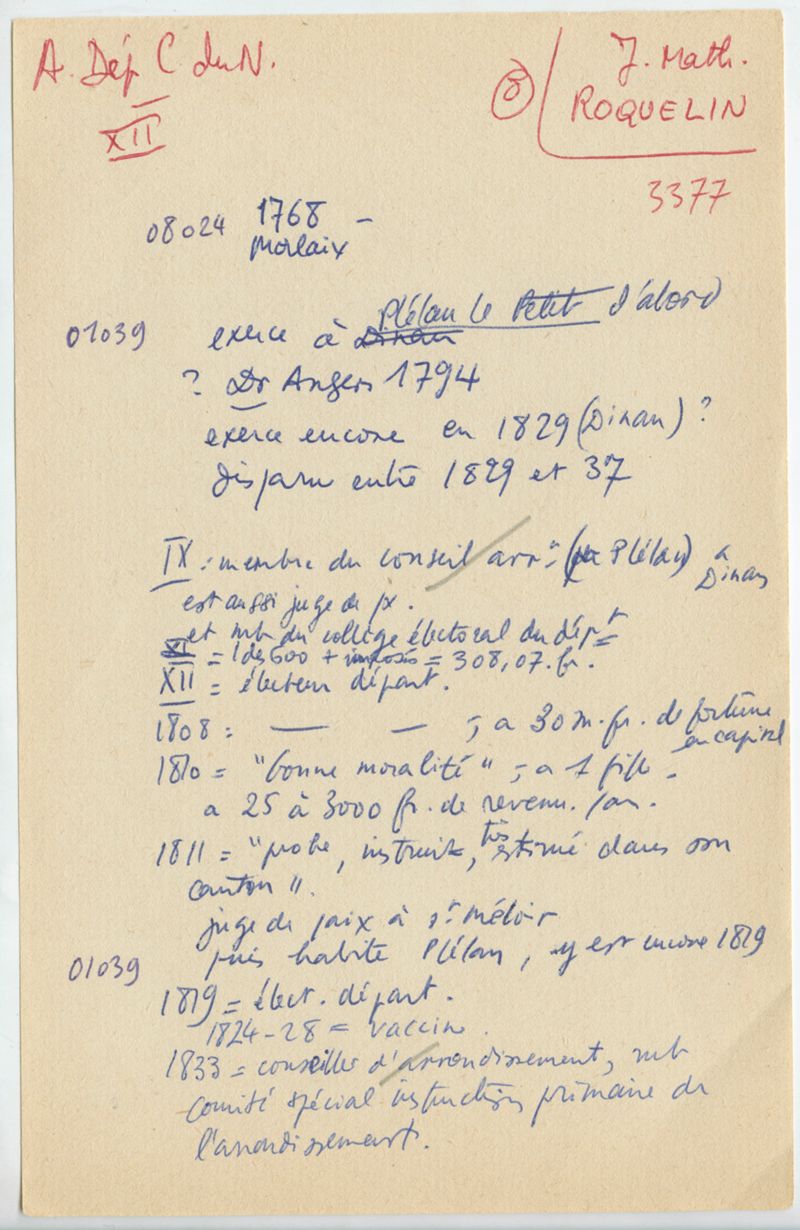 A. Dép C. du N.
XII
J. Math.
ROQUELIN
3377
08024 1768 –
Morlaix
Plélan le Petit d'abord
01039 exerce à Dinan
? Dr Angers 1794
exerce encore en 1829 (Dinan) ?
disparu entre 1829 et 37
IX : membre du conseil arrt (Plélan) a Dinan
est aussi juge de px.
et mb du collège électoral du dépt
XI = 1 des 600 + imposés = 308,07. fr.
XII = électeur départ.
1808 : — — ; a 30 m. fr. de fortune
en capital
1810 = "bonne moralité" ; a 1 fils –
a 25 à 3000 fr. de revenu. /an.
1811 = "probe, instruit, très estimé dans son
canton".
juge de paix à St Méloir
01039 puis habite Plélan, y est encore 1819
1819 = élect. départ.
1824-28 = vaccine.
1833 = conseiller d'arrondissement, mb
comité spécial instruction primaire de
l'arrondissement.